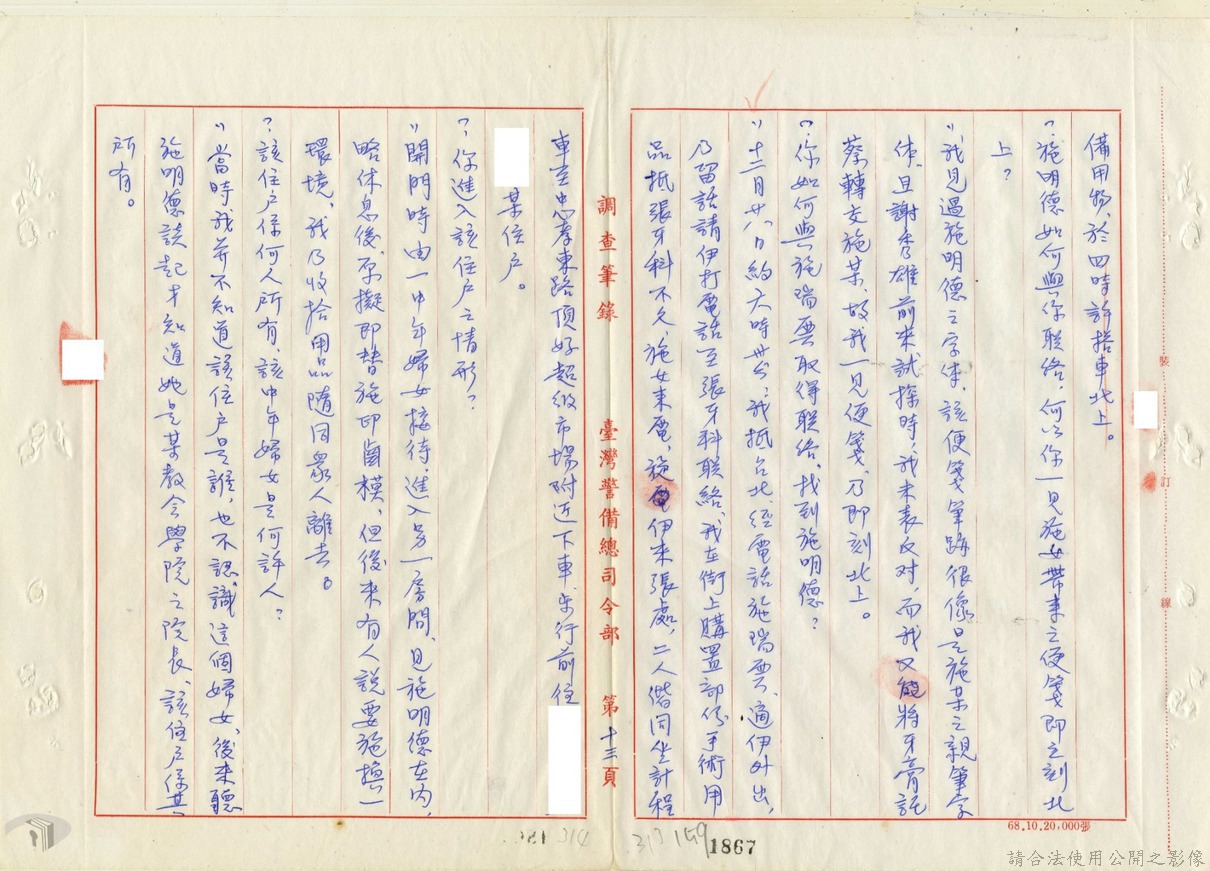 備用物,於四時許搭車北上。
?:施明德如何與你联络,何以你一見施女帶来之便箋即立刻北
上?
":我見過施明德之字体,該便箋筆跡很像是施某之親筆字
体,且謝秀雄前来試探時,我未表反对,而我又能將牙膏託
蔡轉交施某,故我一見便箋,乃即刻北上。
?:你如何與施瑞雲取得联络,找到施明德?
":十二月廿八日約六時卅分,我抵台北,經電話施瑞雲,適伊外出,
乃留話請伊打電話至張牙科联絡,我在街上購置部份手術用
品抵張牙科不久施女来電,施電伊来張處,二人偕同坐計程
調查筆錄 臺灣警備總司令部 第十三頁
車至忠孝東路頂好超級市場附近下車步行前往
某住户。
?:你進入該住户之情形?
":開門時由一中年婦女接待,進入另一房間,見施明德在内,
略休息後,原擬即替施印齒模,但後来有人說要施換一
環境,我乃收拾用品隨同眾人離去。
?:該住户係何人所有,該中年婦女是何許人?
":當時我并不知道該住户是誰,也不認識這個婦女,後来聽
施明德談起才知道她是某教会學院之院長,該住户係其
所有。
裝
訂
線
68.10.20,000張
314
313 159 1867
請合法使用公開之影像